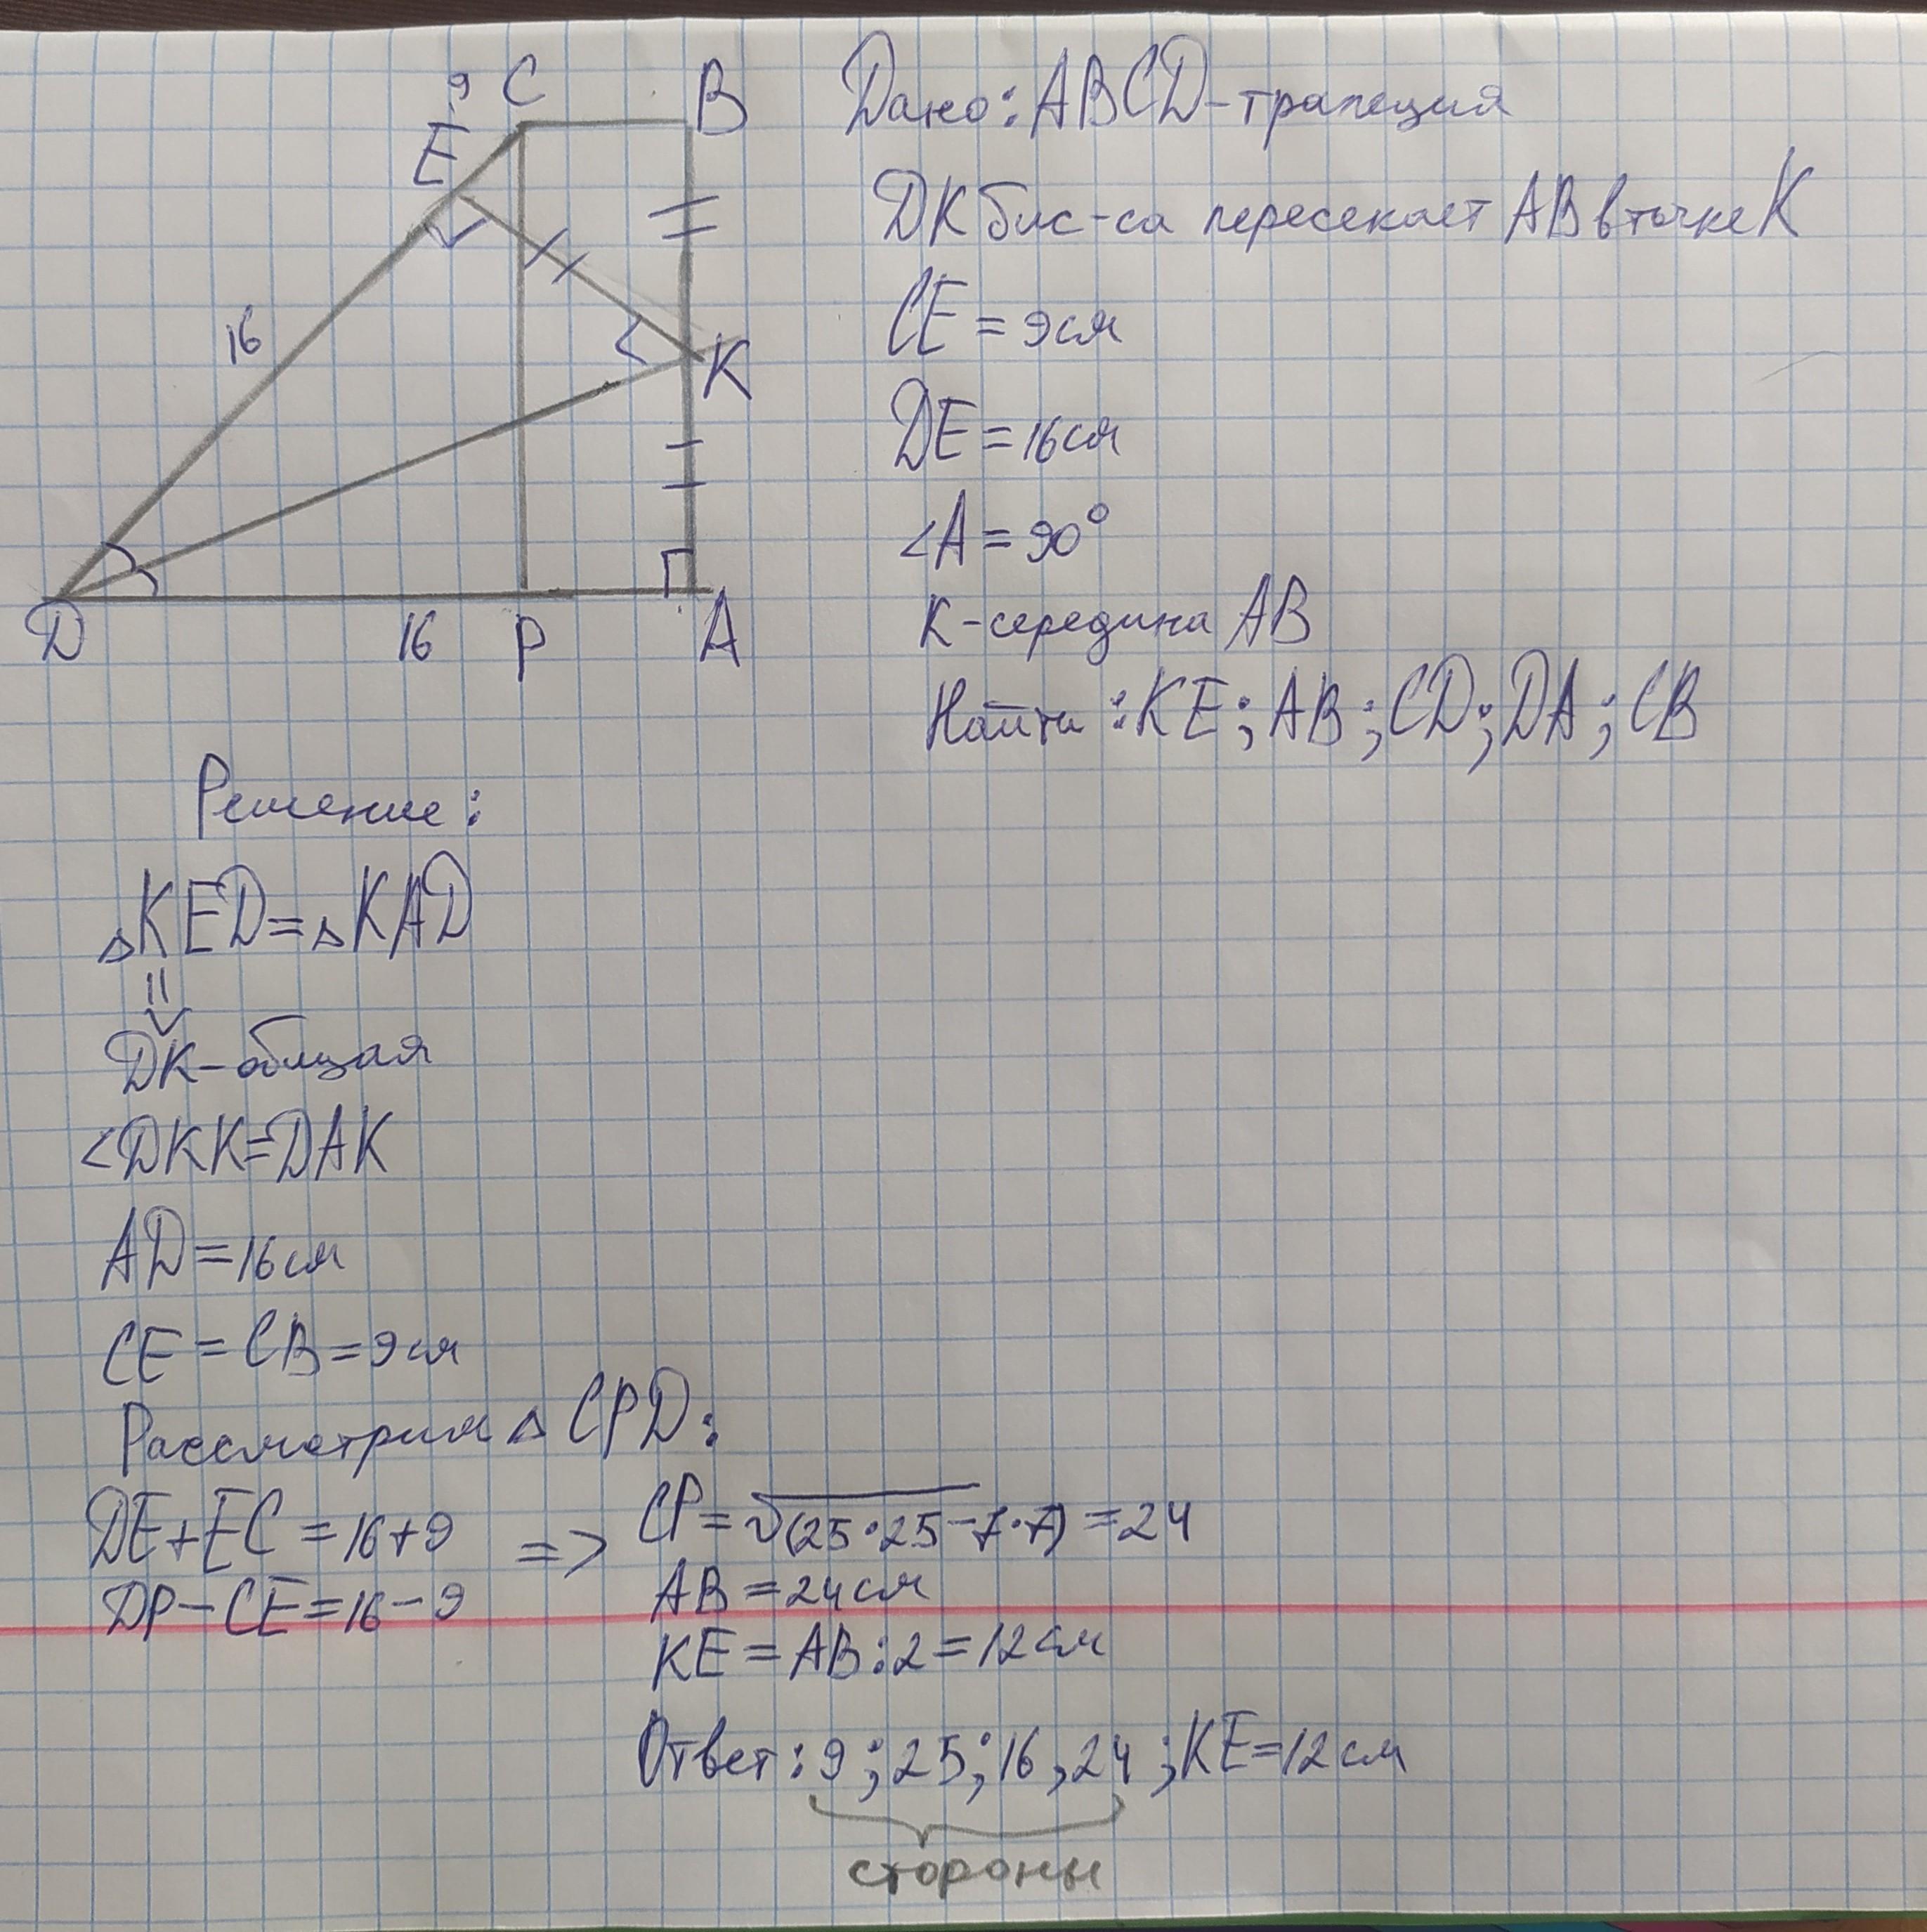 9 C B
E
16
K
D 16 P A
Дано: ABCD-трапеция
DK бис-са пересекает AB в точке K
CE = 9см
DE = 16см
<A = 90°
K-середина AB
Найти: KE; AB; CD; DA; CB
Решение:
△KED=△KAD
DK-общая
<DKK=DAK
AD=16см
CE = CB = 9см
Рассмотрим △CPD:
DE+EC = 16+9
DP-CE = 16-9
=> CP = √(25·25-7·7) = 24
AB = 24см
KE = AB:2 = 12см
Ответ: 9; 25; 16, 24; KE=12см
стороны